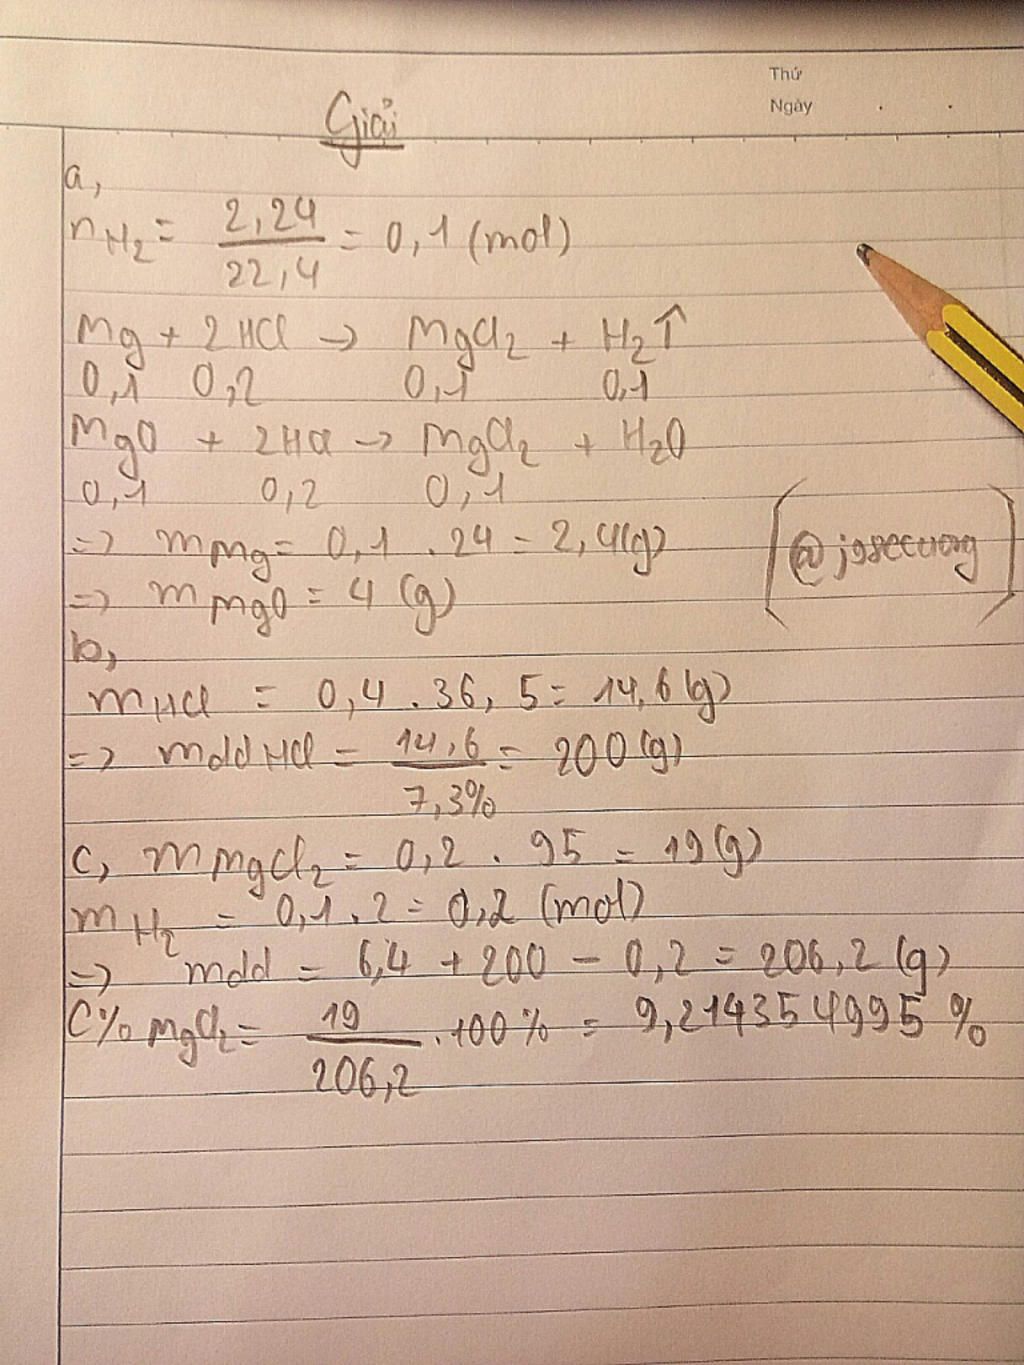 Thứ
Ngày
Giải
a,
nH₂ = 2,24 / 22,4 = 0,1 (mol)
Mg + 2HCl → MgCl₂ + H₂↑
0,1 0,2 0,1 0,1
MgO + 2HCl → MgCl₂ + H₂O
0,1 0,2 0,1
=> mMg = 0,1 . 24 = 2,4(g)
=> mMgO = 4 (g)
b,
mHCl = 0,4 . 36,5 = 14,6(g)
=> mddHCl = 14,6 / 7,3% = 200(g)
c, mMgCl₂ = 0,2 . 95 = 19(g)
mH₂ = 0,1 . 2 = 0,2 (mol)
=> mdd = 6,4 + 200 - 0,2 = 206,2 (g)
C% MgCl₂ = 19 / 206,2 . 100% = 9,214354995 %